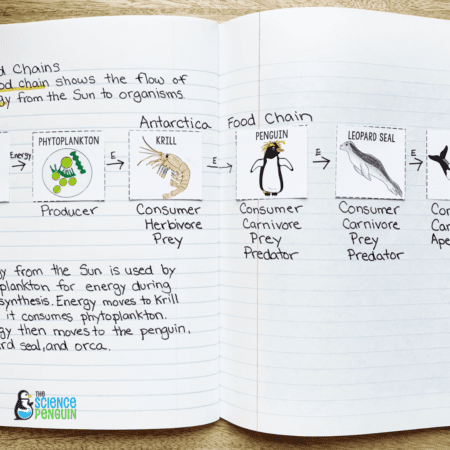 d Chains
od chain shows the flow of
gy from the Sun to organisms.
Antarctica Food Chain
Energy
PHYTOPLANKTON
E
KRILL
E
PENGUIN
E
LEOPARD SEAL
E
Producer
Consumer
Herbivore
Prey
Consumer
Carnivore
Prey
Predator
Consumer
Carnivore
Prey
Predator
Con
Car
Ape
gy from the Sun is used by
plankton for energy during
synthesis. Energy moves to Krill
it consumes phytoplankton.
gy then moves to the penguin,
rd seal, and orca.
THE
SCIENCE
PENGUIN